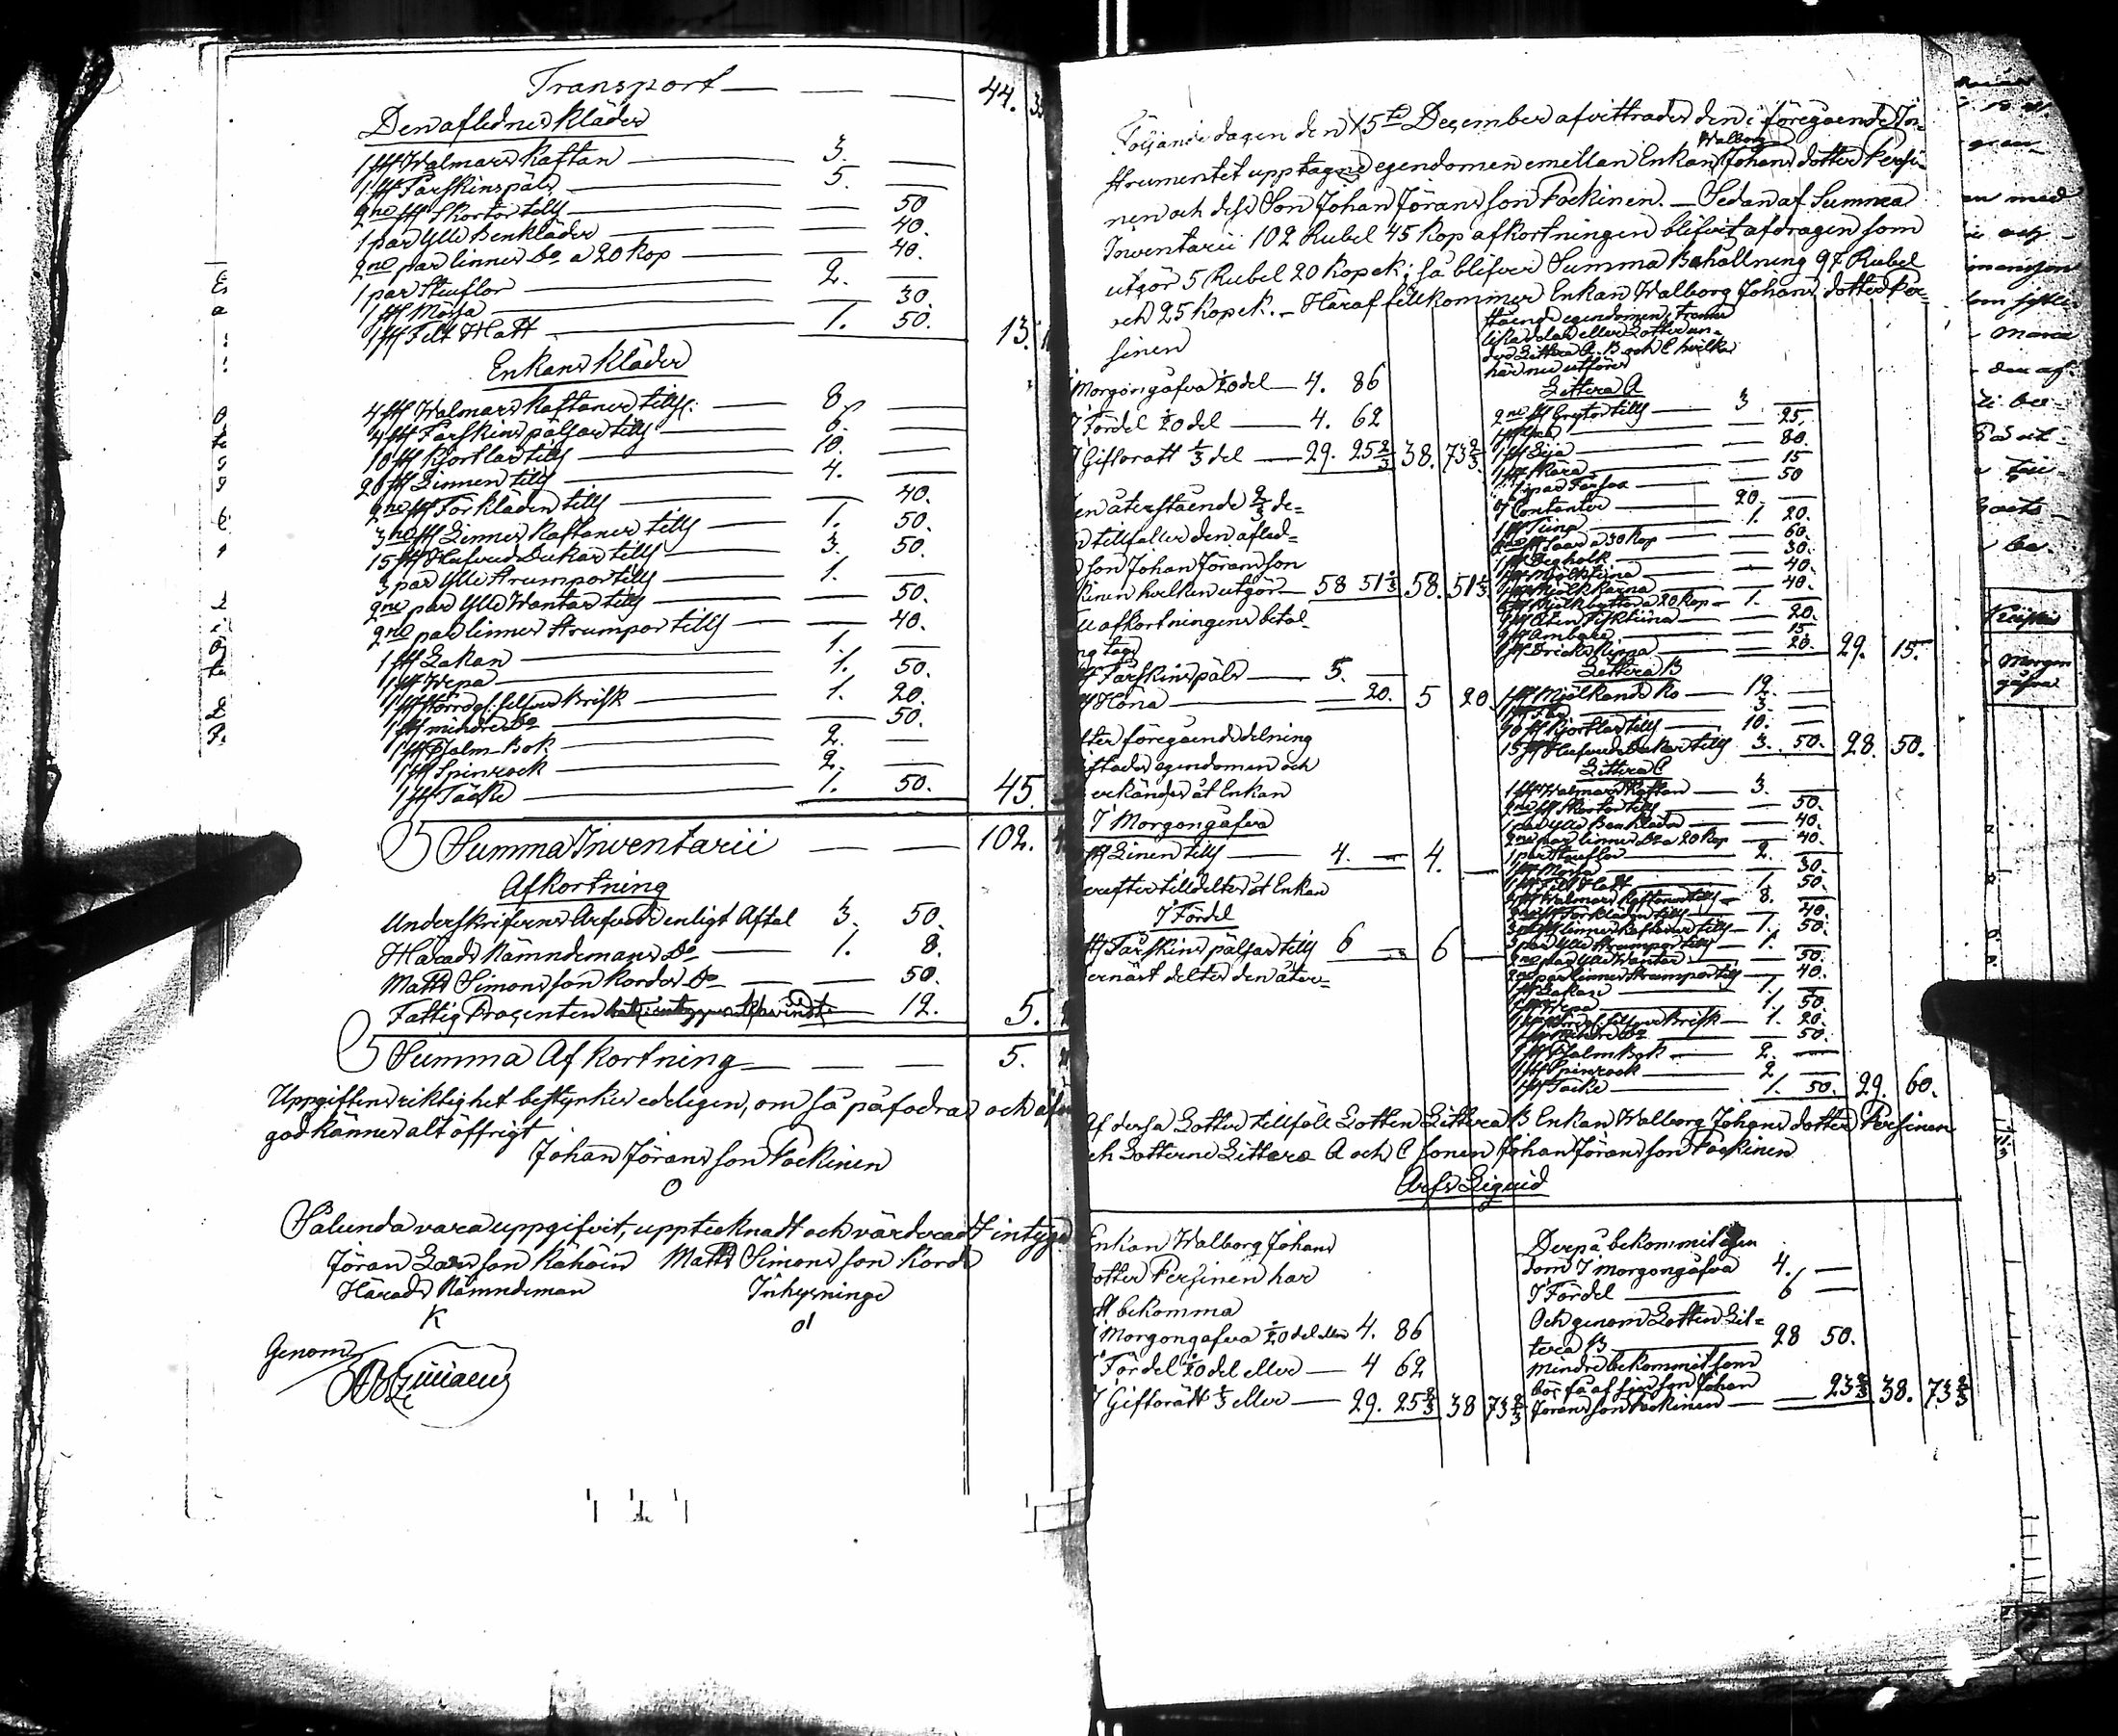 Transport — — — 44.
Den aflednes kläder
1 st Walmars Kaftan — 3. —
1 st Fårskinspäls — 5. —
2ne st Skortor tills — — 50
1 par Ylle Benkläder — — 40.
2ne par linnes Do a 20 Kop — — 40.
1 par Stuflor — 2. —
1 st Mössa — — 30.
1 st Felt Hatt — 1. 50. 13.
Enkans kläder
4 st Walmars Kaftaner tills: — 8 —
4 st Fårskins pälsar tills — 6. —
10 st Kjortlar tills — 10. —
20 st Linnen tills — 4. —
2ne st Förkläden tills — — 40.
3ne st Linnes Kaftaner tills — 1. 50.
15 st Hufvud Dukar tills — 3. 50.
3 par Ylle Strumpor tills — 1. —
2ne par Ylle Wantar tills — — 50.
2ne par linnes Strumpor tills — — 40.
1 st Lakan — 1. —
1 st Wepa — 1. 50.
1 st större silfver Brisk — 1. 20.
1 st mindre Do — — 50.
1 st Psalm Bok — 2. —
1 st Spinrock — 2. —
1 st Täcke — 1. 50. 45.
Summa Inventarii — — 102.
Afkortning
Underskrifvarens Arfvode enligt Aftal 3. 50.
Härads Nämndemans Do — 1. 8.
Matts Simonsson Kordes Do — — 50.
Fattig Procenten — 12. 5.
Summa Afkortning — — — 5.
Uppgiftens riktighet bestyrkes edeligen, om så påfodras och
godkännes alt öffrigt
Johan Jöransson Packinen
O
Sålunda vara uppgifvit, upptecknadt och värderadt intyga
Jöran Larsson Kähöin Matts Simonsson Korde
Härads Nämndeman Inhysninge
K
Genom
Följande dagen den 15de December afvittrades den i föregående In-
strumentet upptagne egendomen emellan Enkan Walborg Johans dotter Persi-
nen och dess Son Johan Jöransson Packinen. — Sedan af Summa
Inventarii 102 Rubel 45 Kop afkortningen blifvit afdragen som
utgör 5 Rubel 20 Kopek; så blifver Summa Behållning 97 Rubel
och 25 Kopek. — Häraf tillkommer Enkan Walborg Johans dotter Per-
sinen
Morgongåfva 1/20 del — 4. 86
I Fördel 1/20 del — 4. 62
I Giftorätt 1/3 del — 29. 25 2/3 38. 73 2/3
en återstående 2/3 de-
tillfaller den afled-
son Johan Jöransson
kinen hvilken utgör — 58 51 1/3 58. 51 1/3
afkortningens betal-
ng tags
Fårskinspäls — 5. —
Höna — 20. 5 20
fter föregående delning
iftades egendomen och
erkändes åt Enkan
I Morgongåfva
st Linen tills — 4. — 4. —
erefter tilldeltes åt Enkan
I Fördel
st Fårskins pälsar tills 6 — 6 —
ernäst deltes den åter-
stående egendomen i trenne
lika delar eller Lotter un-
der Littera A. B och C hvilka
här nu utföres
Littera A
2ne st Grytor tills — 3 —
25.
1 st Lija — — 80.
1 st Skära — — 15
50
Contanter — 20. —
1 st Tiina — 1. 20.
Saar a 30 Kop — — 60.
1 st Degholk — — 30.
1 st Mjölktiina — — 40.
1 st Mjölk Kärna — — 40.
Mjölkbyttor a 20 Kop — 1. —
1 st Åten Fisktiina — — 20.
1 st Ambare — — 15.
1 st Dricks Kippa — — 20. 29. 15.
Littera B
1 st Mjölkande Ko — 12. —
1 st Får — 3. —
10 st Kjortlar tills — 10. —
15 st Hufvud Dukar tills 3. 50. 28. 50.
Littera C
1 st Walmars Kaftan — 3. —
2ne st Skortor tills — — 50.
1 par Ylle Benkläder — — 40.
2ne par linnes Do a 20 Kop — 40.
1 par Stuflor — 2. —
1 st Mössa — — 30.
1 st Felt Hatt — 1. 50.
4 st Walmars Kaftaner tills — 8. —
2ne st Förkläden tills — — 40.
3ne st linnes Kaftaner tills — 1. 50.
3 par Ylle Strumpor tills — 1. —
2ne par Ylle Wantar — — 50.
2ne par linnes Strumpor tills — 40.
1 st Lakan — 1. —
1 st Wepa — 1. 50.
1 st större silfver Brisk — 1. 20.
1 st mindre Do — — 50.
1 st Psalm Bok — 2. —
1 st Spinrock — 2 —
1 st Täcke — 1. 50. 29. 60.
Af dessa Lotter tillföll Lotten Littera B Enkan Walborg Johans dotter Persinen
och Lotterne Littera A och C sonen Johan Jöransson Packinen
Arfs Liquid
Enkan Walborg Johans
dotter Persinen har
att bekomma
I Morgongåfva 1/20 del eller 4. 86
I Fördel 1/20 del eller — 4 62
I Giftorätt 1/3 eller — 29. 25 2/3 38 73 2/3
Derpå bekommit egen
dom I morgongåfva 4. —
I Fördel — 6 —
Och genom Lotten Lit-
tera B — 28 50.
mindre bekommit som
bör få af sin son Johan
Jöransson Packinen — 23 2/3 38. 73 2/3